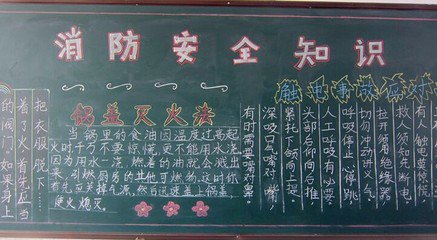 消防安全知识
触电事故应对
有人触电莫惊慌
救人须先断电
拉开
切勿
呼吸停止心停跳
人工呼吸有必要
头部后仰向后推
紧托下颌向上提
深吸口气嘴对嘴
有时需要嘴对鼻
锅盖灭火法
当锅里的食油因温度过高起
火时,千万不要惊慌,更不能用水浇,
因为水一浇,燃着的油就会溅出
来,引燃厨房的其他可燃物。这时你
首先应关掉气源,然后迅速盖上锅盖,
使火熄灭。
把衣服脱下……
着了火,首先应当
的阀门,如果身上